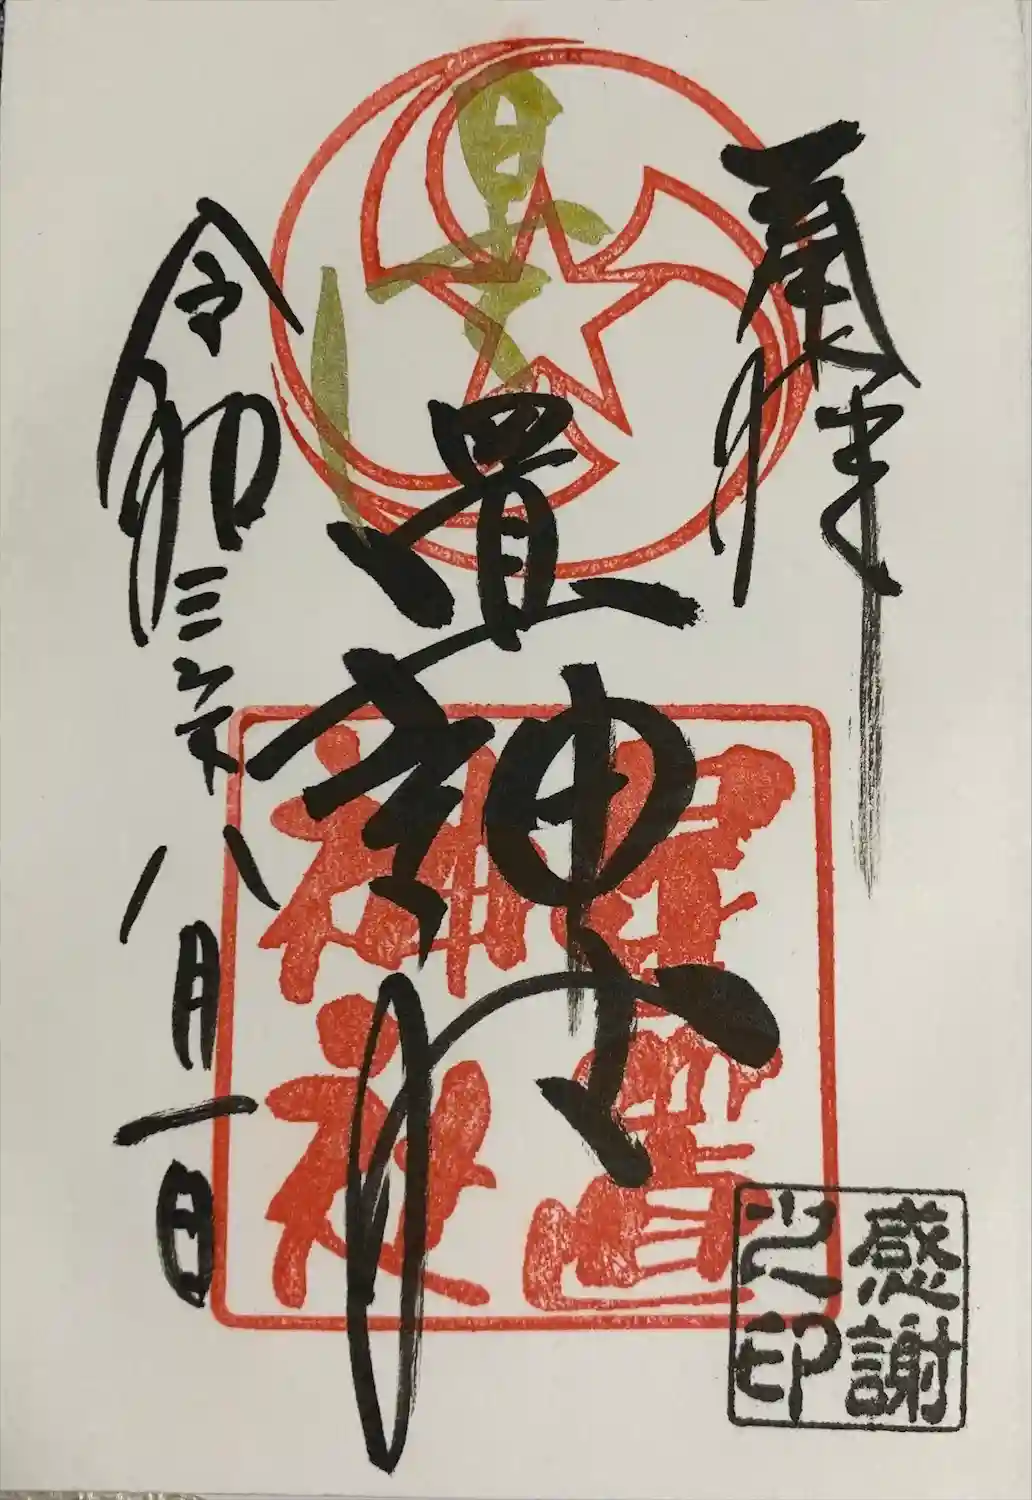 奉拝
星置
神社
令和三年八月一日
星置
神社
感謝
之印